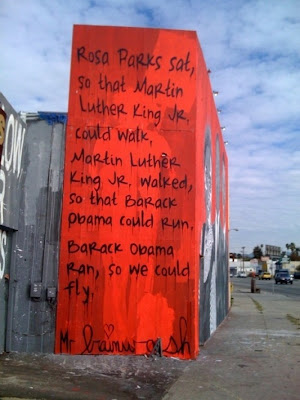 Rosa Parks sat,
so that Martin
Luther King Jr.
could walk.
Martin Luther
King Jr. walked,
so that Barack
Obama could run.
Barack Obama
ran, so we could
fly.
Mr brainwash